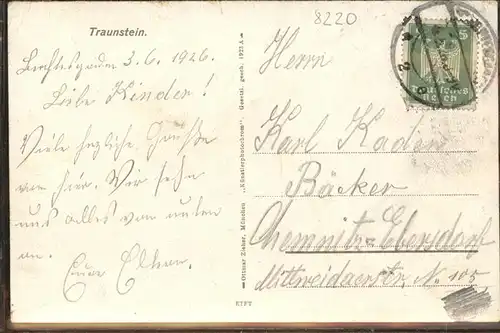 Traunstein.
8220
Berchtesgaden 3. 6. 1926.
Liebe Kinder!
Viele herzliche Grüße
von hier. Wir sehn
uns alles von unten
an.
Eure Eltern.
Ottmar Zieher, München "Künstlerphotochrom". Gesetzl. gesch. 1923 A
Herrn
Karl Kaden
Bäcker
Chemnitz-Ebersdorf
Mittweidaerstr. No. 105
5
Deutsches
Reich